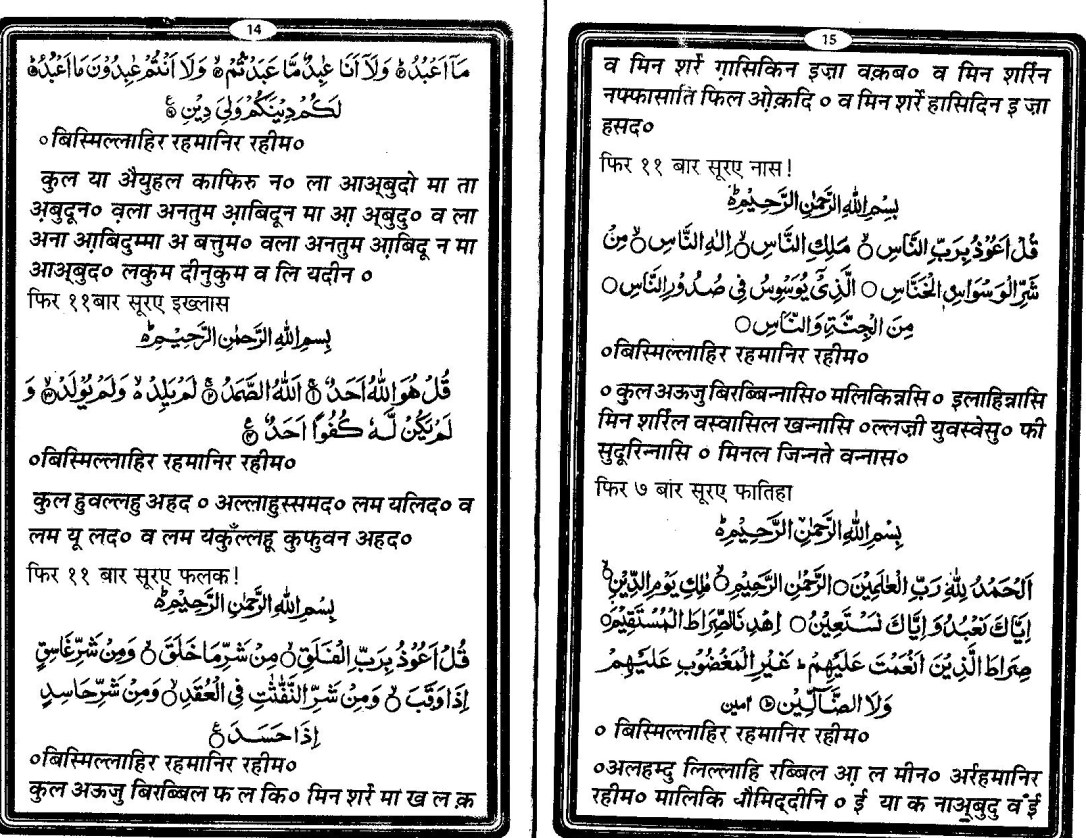 14
مَآ اَعْبُدُ ۚ وَلَآ اَنَا عَابِدٌ مَّا عَبَدْتُّمْ ۙ وَلَآ اَنْتُمْ عٰبِدُوْنَ مَا اَعْبُدُ ؕ
لَكُمْ دِيْنُكُمْ وَلِيَ دِيْنِ
०बिस्मिल्लाहिर रहमानिर रहीम०
कुल या अैयुहल काफिरु न० ला आअ्बुदो मा ता
अ़बुदून० व़ला अनतुम आ़बिदून मा आ़ अ्बुदु० व ला
अना आ़बिदुम्मा अ बत्तुम० वला अनतुम आ़बिदू न मा
आअ्बुद० लकुम दीनुकुम व लि यदीन ०
फिर ११बार सूरए इख्लास
بِسْمِ اللهِ الرَّحْمٰنِ الرَّحِيْمِ
قُلْ هُوَ اللهُ اَحَدٌ ۚ اَللهُ الصَّمَدُ ۚ لَمْ يَلِدْ ۙ وَلَمْ يُوْلَدْ ۙ وَ
لَمْ يَكُنْ لَّهٗ كُفُوًا اَحَدٌ
०बिस्मिल्लाहिर रहमानिर रहीम०
कुल हुवल्लहु अहद ० अल्लाहुस्समद० लम यलिद० व
लम यू लद० व लम यकुँल्लहू कुफुवन अहद०
फिर ११ बार सूरए फलक!
بِسْمِ اللهِ الرَّحْمٰنِ الرَّحِيْمِ
قُلْ اَعُوْذُ بِرَبِّ الْفَلَقِ ۙ مِنْ شَرِّ مَا خَلَقَ ۙ وَمِنْ شَرِّ غَاسِقٍ
اِذَا وَقَبَ ۙ وَمِنْ شَرِّ النَّفّٰثٰتِ فِى الْعُقَدِ ۙ وَمِنْ شَرِّ حَاسِدٍ
اِذَا حَسَدَ
०बिस्मिल्लाहिर रहमानिर रहीम०
कुल अऊजु बिरब्बिल फ ल कि० मिन शर्रे मा ख ल क़
15
व मिन शर्रे ग़ासिकिन इज़ा वक़ब० व मिन शर्रिन
नफ्फासाति फिल ओ़क़दि ० व मिन शर्रे हासिदिन इ ज़ा
हसद०
फिर ११ बार सूरए नास!
بِسْمِ اللهِ الرَّحْمٰنِ الرَّحِيْمِ
قُلْ اَعُوْذُ بِرَبِّ النَّاسِ ۙ مَلِكِ النَّاسِ ۙ اِلٰهِ النَّاسِ ۙ مِنْ
شَرِّ الْوَسْوَاسِ الْخَنَّاسِ ۙ الَّذِىْ يُوَسْوِسُ فِى صُدُوْرِ النَّاسِ ۙ
مِنَ الْجِنَّةِ وَالنَّاسِ
०बिस्मिल्लाहिर रहमानिर रहीम०
० कुल अऊजु बिरब्बिन्नासि० मलिकिन्नसि ० इलाहिन्नासि
मिन शर्रिल वस्वासिल खन्नासि ०ल्लज़ी युवस्वेसु० फी
सुदूरिन्नासि ० मिनल जिन्नते वन्नास०
फिर ७ बार सूरए फातिहा
بِسْمِ اللهِ الرَّحْمٰنِ الرَّحِيْمِ
اَلْحَمْدُ لِلّٰهِ رَبِّ الْعٰلَمِيْنَ ۙ الرَّحْمٰنِ الرَّحِيْمِ ۙ مٰلِكِ يَوْمِ الدِّيْنِ
اِيَّاكَ نَعْبُدُ وَاِيَّاكَ نَسْتَعِيْنُ ۙ اِهْدِنَا الصِّرَاطَ الْمُسْتَقِيْمَ
صِرَاطَ الَّذِيْنَ اَنْعَمْتَ عَلَيْهِمْ ۙ غَيْرِ الْمَغْضُوْبِ عَلَيْهِمْ
وَلَا الضَّآلِّيْنَ اٰمين
० बिस्मिल्लाहिर रहमानिर रहीम०
०अलहम्दु लिल्लाहि रब्बिल आ़ ल मीन० अर्रहमानिर
रहीम० मालिकि यौमिद्दीनि ० ई या क नाअ़बुदु व ई